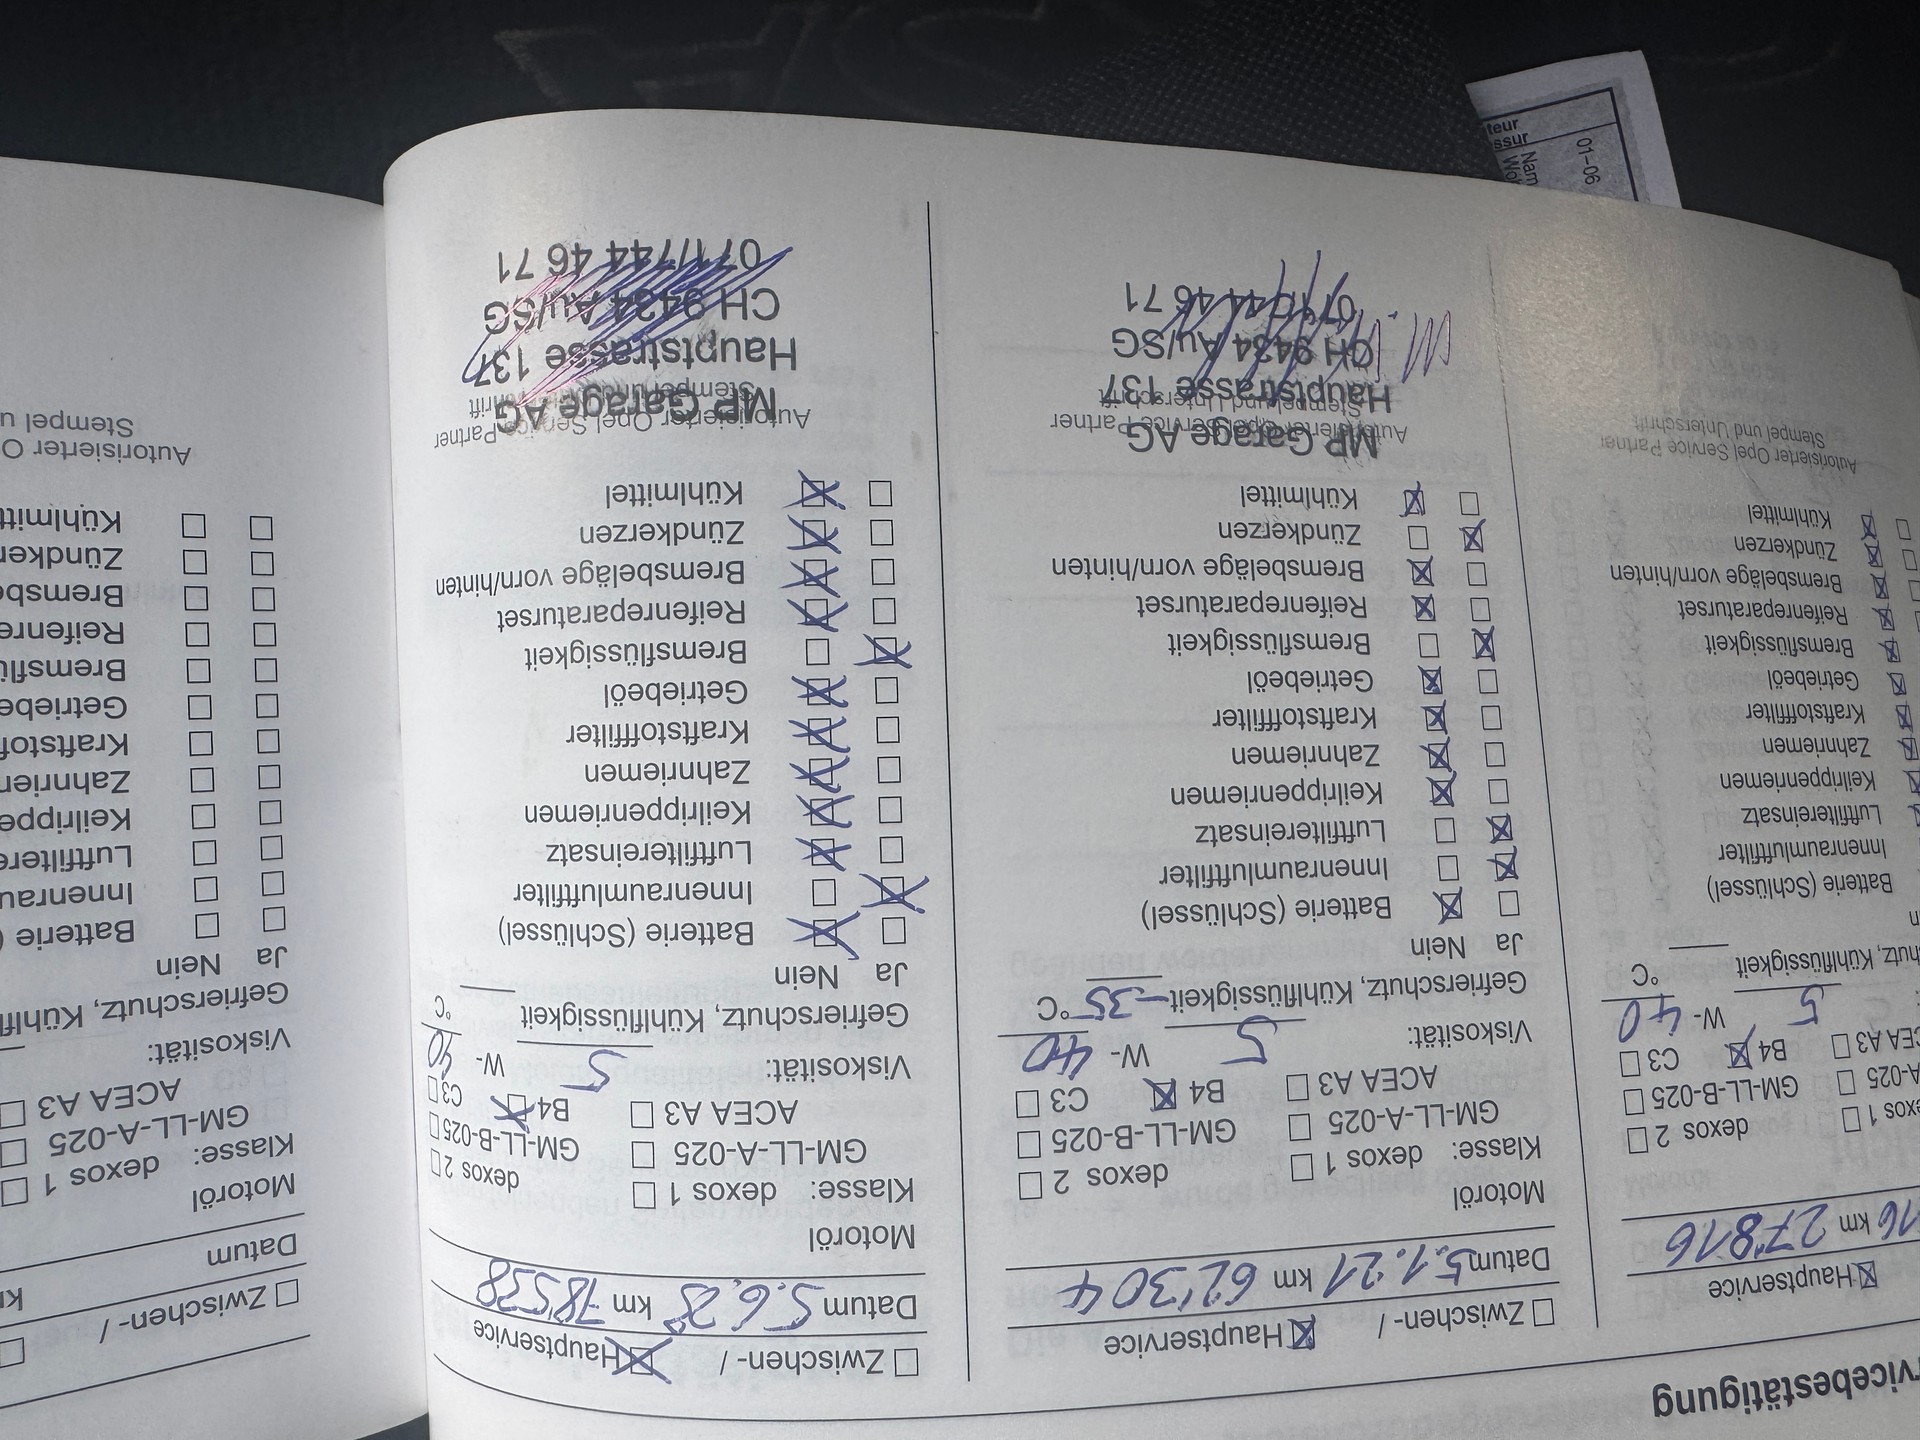 Servicebestätigung
Hauptservice
16 km 27816
dexos 1 dexos 2
GM-LL-A-025 GM-LL-B-025
ACEA A3 B4 C3
5 W- 40
Kühlflüssigkeit °C
Batterie (Schlüssel)
Innenraumluftfilter
Luftfiltereinsatz
Keilrippenriemen
Zahnriemen
Kraftstofffilter
Getriebeöl
Bremsflüssigkeit
Reifenreparaturset
Bremsbeläge vorn/hinten
Zündkerzen
Kühlmittel
Autorisierter Opel Service Partner
Stempel und Unterschrift
Zwischen- / Hauptservice
Datum 5.1.21 km 62304
Motoröl
Klasse: dexos 1 dexos 2
GM-LL-A-025 GM-LL-B-025
ACEA A3 B4 C3
Viskosität: 5 W- 40
Gefrierschutz, Kühlflüssigkeit -35 °C
Ja Nein
Batterie (Schlüssel)
Innenraumluftfilter
Luftfiltereinsatz
Keilrippenriemen
Zahnriemen
Kraftstofffilter
Getriebeöl
Bremsflüssigkeit
Reifenreparaturset
Bremsbeläge vorn/hinten
Zündkerzen
Kühlmittel
MP Garage AG
Autorisierter Opel Service Partner
Stempel und Unterschrift
Hauptstrasse 137
CH 9434 Au/SG
071/744 46 71
Zwischen- / Hauptservice
Datum 5.6.23 km 78538
Motoröl
Klasse: dexos 1 dexos 2
GM-LL-A-025 GM-LL-B-025
ACEA A3 B4 C3
Viskosität: 5 W- 40
Gefrierschutz, Kühlflüssigkeit °C
Ja Nein
Batterie (Schlüssel)
Innenraumluftfilter
Luftfiltereinsatz
Keilrippenriemen
Zahnriemen
Kraftstofffilter
Getriebeöl
Bremsflüssigkeit
Reifenreparaturset
Bremsbeläge vorn/hinten
Zündkerzen
Kühlmittel
MP Garage AG
Autorisierter Opel Service Partner
Stempel und Unterschrift
Hauptstrasse 137
CH 9434 Au/SG
071/744 46 71
Zwischen- /
Datum
Motoröl
Klasse: dexos 1
GM-LL-A-025
ACEA A3
Viskosität:
Gefrierschutz, Kühlfl
Ja Nein
Batterie (
Innenrau
Luftfiltere
Keilrippe
Zahnrien
Kraftstof
Getriebe
Bremsflü
Reifenre
Bremsbe
Zündker
Kühlmitt
Autorisierter O
Stempel u
01-06